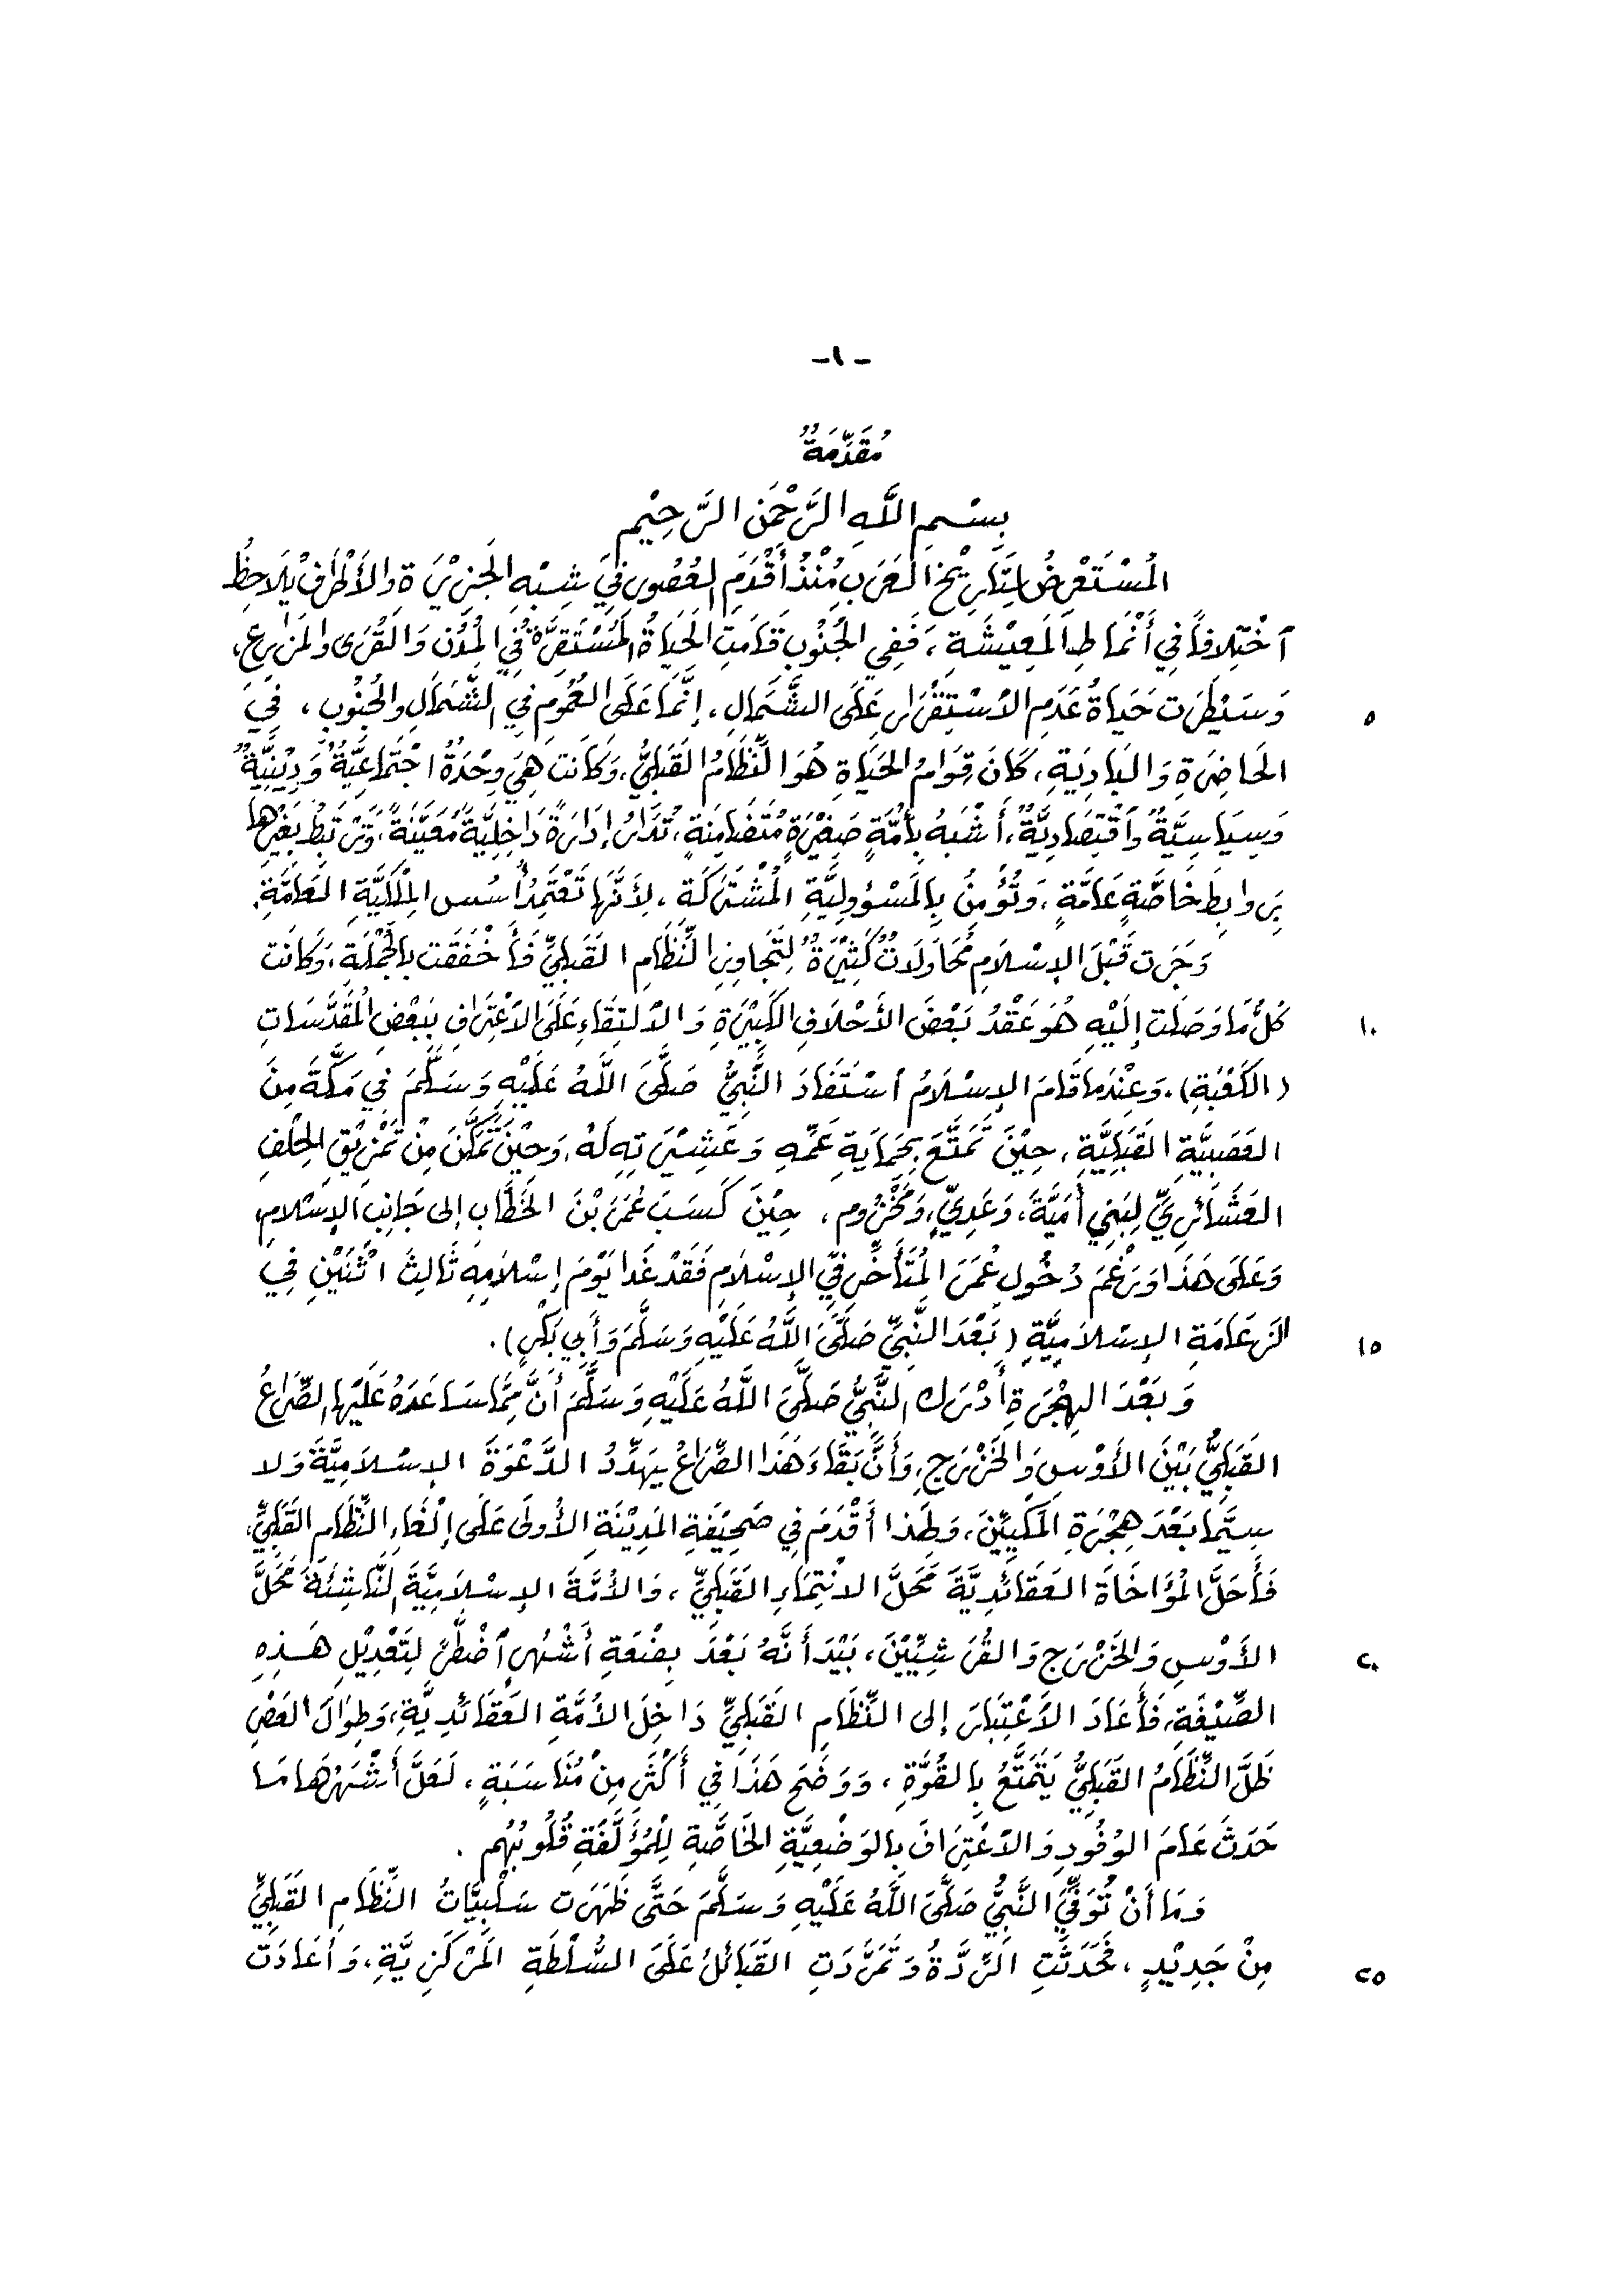 -١-
مُقَدِّمَةٌ
بِسْمِ اللَّهِ الرَّحْمَنِ الرَّحِيْمِ
المُسْتَعْرِضُ لِتَارِيْخِ العَرَبِ مُنْذُ أَقْدَمِ العُصُورِ فِي شِبْهِ الجَزِيْرَةِ وَالأَطْرَافِ يُلَاحِظُ
ٱخْتِلَافاً فِي أَنْمَاطِ المَعِيْشَةِ، فَفِي الجَنُوبِ قَامَتِ الحَيَاةُ المُسْتَقِرَّةُ فِي المُدُنِ وَالقُرَى وَالمَزَارِعِ،
٥ وَسَيْطَرَت حَيَاةُ عَدَمِ الٱسْتِقْرَارِ عَلَى الشَّمَالِ، إِنَّمَا عَلَى العُمُومِ فِي الشَّمَالِ وَالجُنُوبِ، فِي
الحَاضِرَةِ وَالبَادِيَةِ، كَانَ قِوَامُ الحَيَاةِ هُوَ النِّظَامُ القَبَلِيُّ، وَكَانَت هِيَ وِحْدَةٌ ٱجْتِمَاعِيَّةٌ وَدِيْنِيَّةٌ
وَسِيَاسِيَّةٌ وَٱقْتِصَادِيَّةٌ، أَشْبَهُ بِأُمَّةٍ صَغِيْرَةٍ مُتَضَامِنَةٍ، تُدَارُ إِدَارَةً دَاخِلِيَّةً مُعَيَّنَةً، وَتَرْتَبِطُ بِغَيْرِهَا
بِرَوابِطَ خَاصَّةٍ عَامَّةٍ، وَتُؤْمِنُ بِالمَسْؤُولِيَّةِ المُشْتَرَكَةِ، لِأَنَّهَا تَعْتَمِدُ أُسُسَ المِلْكِيَّةِ العَامَّةِ.
وَجَرَت قَبْلَ الإِسْلَامِ مُحَاوَلَاتٌ كَثِيْرَةٌ لِتَجَاوِزِ النِّظَامِ القَبَلِيِّ فَأَخْفَقَت بِالجُمْلَةِ، وَكَانَت
١٠ كُلُّ مَا وَصَلَت إِلَيْهِ هُوَ عَقْدُ بَعْضَ الأَحْلَافِ الكَبِيْرَةِ وَالٱلتِقَاءِ عَلَى الٱعْتِرَافِ بِبَعْضِ المُقَدَّسَاتِ
(الكَعْبَةِ). وَعِنْدَمَا قَامَ الإِسْلَامُ ٱسْتَفَادَ النَّبِيُّ صَلَّى اللَّهُ عَلَيْهِ وَسَلَّمَ فِي مَكَّةَ مِنَ
العَصَبِيَّةِ القَبَلِيَّةِ، حِيْنَ تَمَتَّعَ بِحِمَايَةِ عَمِّهِ وَعَشِيْرَتِهِ لَهُ، وَحِيْنَ تَمَكَّنَ مِنْ تَمْزِيْقِ الحِلْفِ
العَشَائِرِيِّ لِبَنِي أُمَيَّةَ، وَعَدِيٍّ، وَمَخْزُومٍ، حِيْنَ كَسَبَ عُمَرَ بْنَ الخَطَّابِ إِلى جَانِبِ الإِسْلَامِ
وَعَلَى هَذَا وَرَغْمَ دُخُولِ عُمَرَ المُتَأَخِّرِ فِي الإِسْلَامِ فَقَدْ غَدَا يَوْمَ إِسْلَامِهِ ثَالِثَ ٱثْنَيْنِ فِي
١٥ الزَعَامَةِ الإِسْلَامِيَّةِ (بَعْدَ النَّبِيِّ صَلَّى اللَّهُ عَلَيْهِ وَسَلَّمَ وَأَبِي بَكْرٍ).
وَبَعْدَ الهِجْرَةِ أَدْرَكَ النَّبِيُّ صَلَّى اللَّهُ عَلَيْهِ وَسَلَّمَ أَنَّ مِمَّا سَاعَدَهُ عَلَيْهَا الصِّرَاعُ
القَبَلِيُّ بَيْنَ الأَوْسِ وَالخَزْرَجِ، وَأَنَّ بَقَاءَ هَذَا الصِّرَاعُ يُهَدِّدُ الدَّعْوَةَ الإِسْلَامِيَّةَ وَلا
سِيَّمَا بَعْدَ هِجْرَةِ المَكِّيِّيْنَ، وَلِهَذا أَقْدَمَ فِي صَحِيْفَةِ المَدِيْنَةِ الأُولَى عَلَى إِلْغَاءِ النِّظَامِ القَبَلِيِّ،
فَأَحَلَّ المُؤَاخَاةَ العَقَائِدِيَّةَ مَحَلَّ الانْتِمَاءِ القَبَلِيِّ، وَالأُمَّةَ الإِسْلَامِيَّةَ النَّاشِئَةَ مَحَلَّ
٢٠ الأَوْسِ وَالخَزْرَجِ وَالقُرَشِيِّيْنَ، بَيْدَ أَنَّهُ بَعْدَ بِضْعَةِ أَشْهُرٍ ٱضْطُرَّ لِتَعْدِيْلِ هَذِهِ
الصِّيْغَةِ، فَأَعَادَ الٱعْتِبَارَ إِلى النِّظَامِ القَبَلِيِّ دَاخِلَ الأُمَّةِ العَقَائِدِيَّةِ، وَطِوَالَ العَصْرِ
ظَلَّ النِّظَامُ القَبَلِيُّ يَتَمَتَّعُ بِالقُوَّةِ، وَوَضَحَ هَذَا فِي أَكْثَرَ مِنْ مُنَاسَبَةٍ، لَعَلَّ أَشْهَرَهَا مَا
حَدَثَ عَامَ الوُفُودِ وَالٱعْتِرَافَ بِالوَضْعِيَّةِ الخَاصَّةِ لِلْمُؤَلَّفَةِ قُلُوبُهُم.
وَمَا أَنْ تُوُفِّيَ النَّبِيُّ صَلَّى اللَّهُ عَلَيْهِ وَسَلَّمَ حَتَّى ظَهَرَت سَلْبِيَّاتُ النِّظَامِ القَبَلِيِّ
٢٥ مِنْ جَدِيْدٍ، فَحَدَثَتِ الرِّدَّةُ وَتَمَرَّدَتِ القَبَائِلُ عَلَى السُّلْطَةِ المَرْكَزِيَّةِ، وَأَعَادَت